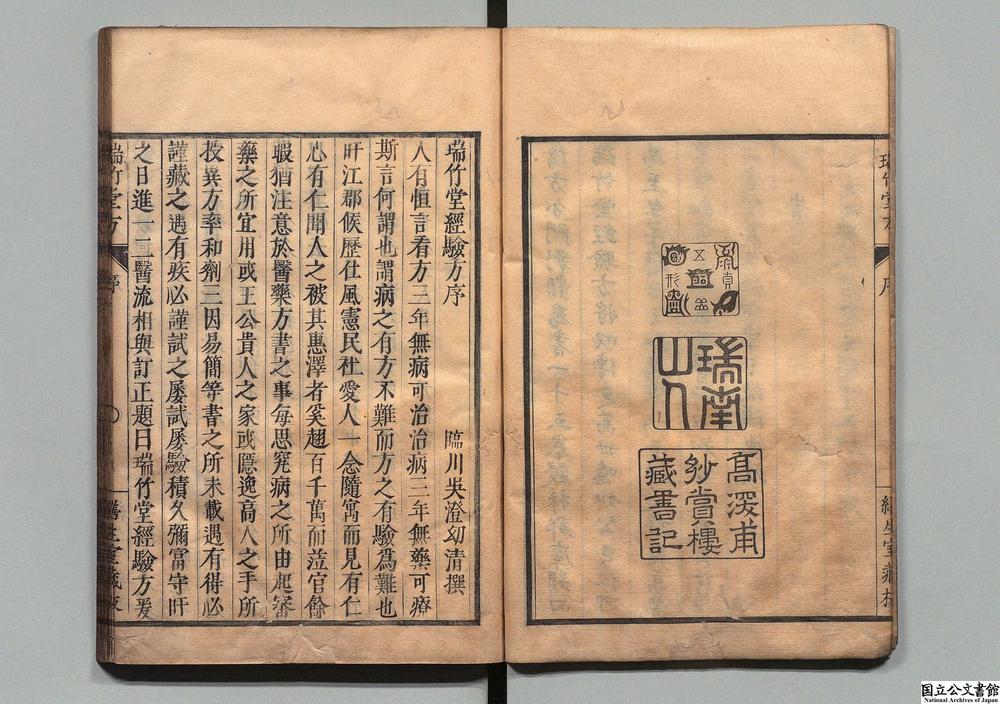 瑞竹堂經驗方序
臨川吳澄幼清撰
人有恒言看方三年無病可治治病三年無藥可療
斯言何謂也謂病之有方不難而方之有驗爲難也
旴江郡候歷仕風憲民社愛人一念隨寓而見有仁
心有仁聞人之被其惠澤者奚趐百千萬而蒞官餘
暇猶注意於醫藥方書之事每思究病之所由起審
藥之所宜用或王公貴人之家或隱逸高人之手所
授異方率和劑三因易簡等書之所未載遇有得必
謹藏之遇有疾必謹試之屢試屢驗積久彌富守旴
之日進一二醫流相與訂正題曰瑞竹堂經驗方爰
瑞竹堂方
序
瑞竹堂方
序
瑞南
山人
高深甫
妙賞樓
藏書記
国立公文書館
National Archives of Japan